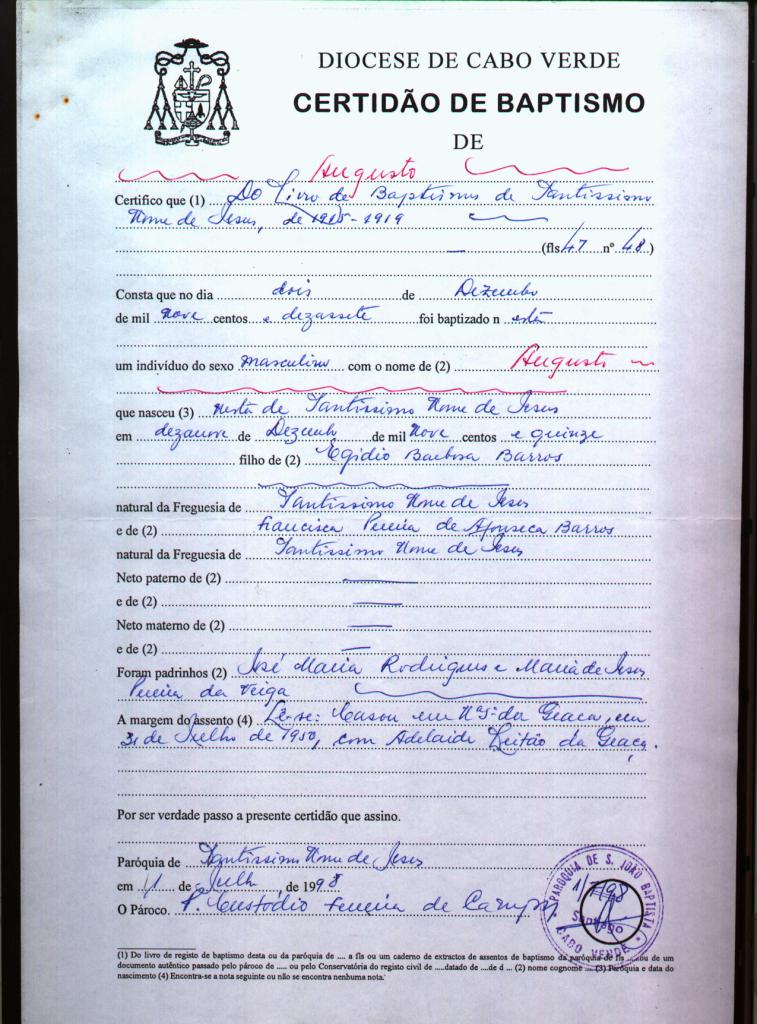 DIOCESE DE CABO VERDE
CERTIDÃO DE BAPTISMO
DE
Augusto
Certifico que (1) Do Livro de Baptismos de Santissimo
Nome de Jesus, de 1915-1919
(fls 47 nº 48)
Consta que no dia dois de Dezembro
de mil nove centos e dezassete foi baptizado n esta
um indivíduo do sexo masculino com o nome de (2) Augusto
que nasceu (3) nesta de Santissimo Nome de Jesus
em dezanove de Dezembro de mil nove centos e quinze
filho de (2) Egidio Barbosa Barros
natural da Freguesia de Santissimo Nome de Jesus
e de (2) Francisca Pereira de Afonseca Barros
natural da Freguesia de Santissimo Nome de Jesus
Neto paterno de (2)
e de (2)
Neto materno de (2)
e de (2)
Foram padrinhos (2) José Maria Rodrigues e Maria de Jesus
Pereira da Veiga
A margem do assento (4) Le-se: Casou em Nª Sª da Graça, em
31 de Julho de 1950, com Adelaide Leitão da Graça.
Por ser verdade passo a presente certidão que assino.
Paróquia de Santissimo Nome de Jesus
em 1 de Julho, de 1998
O Pároco. P. Custódio Ferreira de Campos
PARÓQUIA DE S. JOÃO BAPTISTA
1/7/98
Santiago
CABO VERDE
(1) Do livro de registo de baptismo desta ou da paróquia de .... a fls ou um caderno de extractos de assentos de baptismo da paróquia de fls ......ou de um
documento autêntico passado pelo pároco de ..... ou pelo Conservatória do registo civil de .....datado de ....de d ... (2) nome cognome ... (3) Paróquia e data do
nascimento (4) Encontra-se a nota seguinte ou não se encontra nenhuma nota.